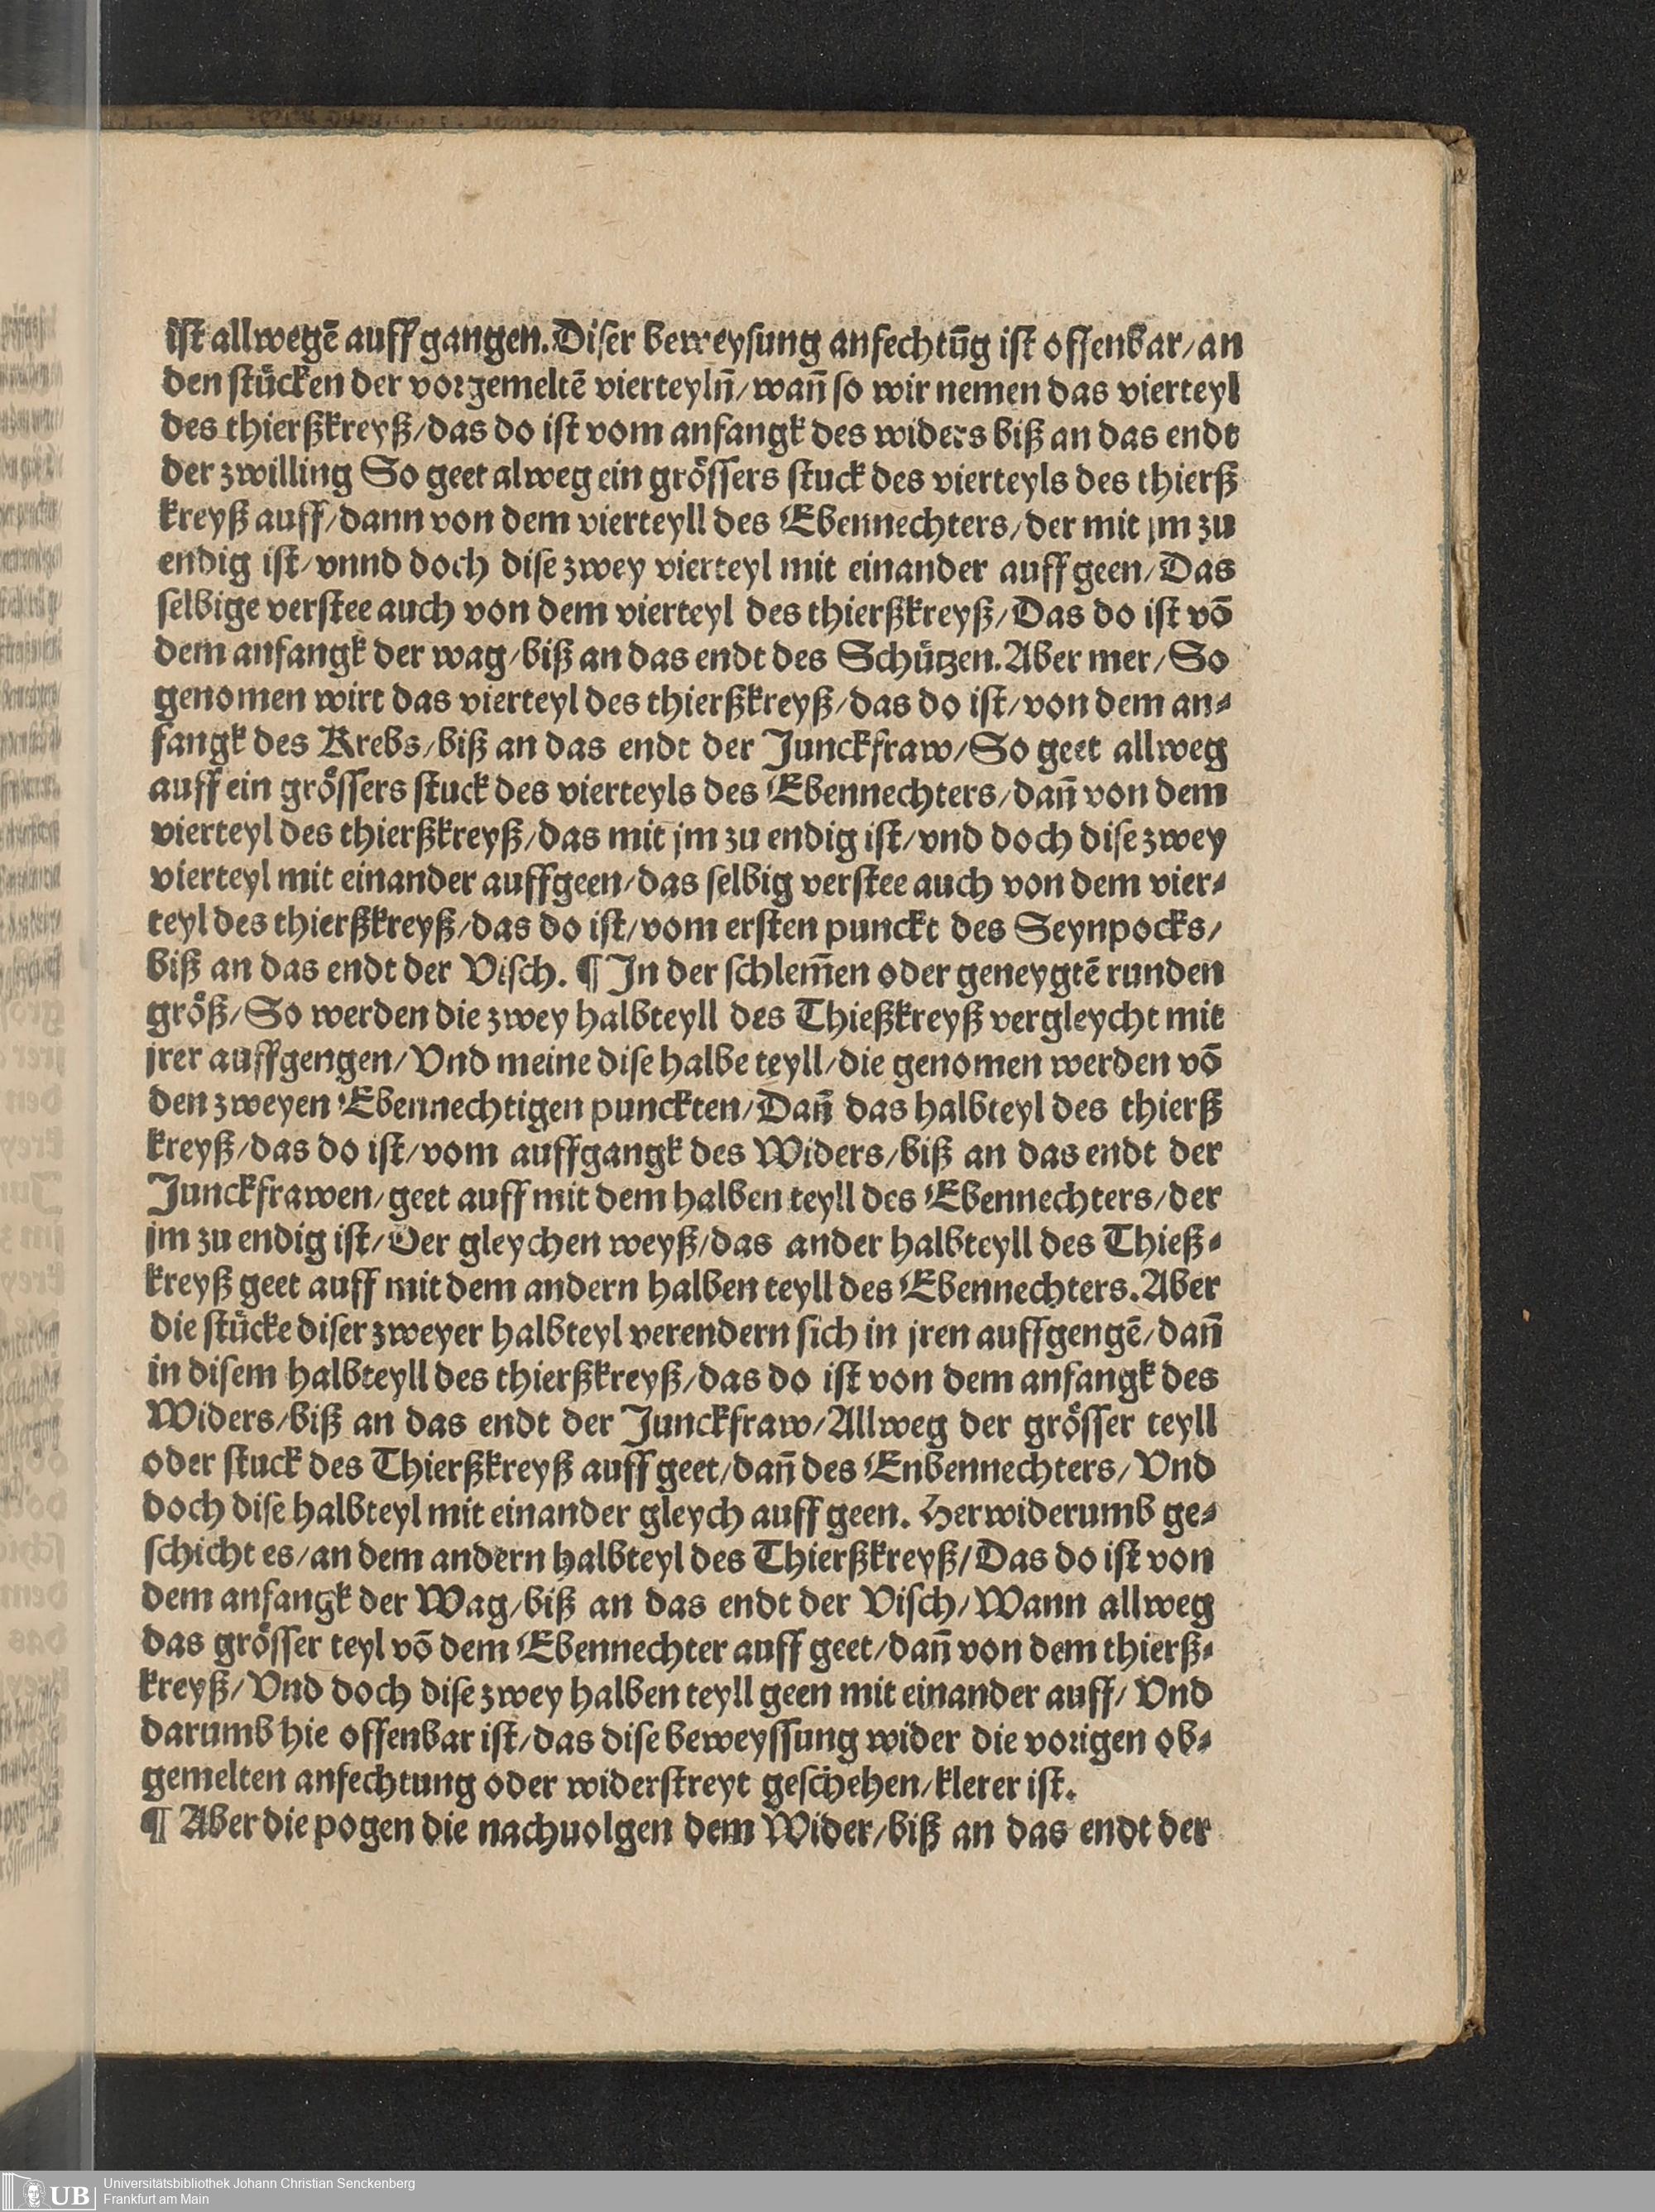 iſt allwegē auff gangen. Diſer beweyſung anfechtūg iſt offenbar/ an
den ſtuͤcken der vorgemeltē vierteyln̄/ wan̄ ſo wir nemen das vierteyl
des thierßkreyß/ das do iſt vom anfangk des widers biß an das endt
der zwilling So geet alweg ein groͤſſers ſtuck des vierteyls des thierß
kreyß auff/ dann von dem vierteyll des Ebennechters/ der mit jm zu
endig iſt/ vnnd doch diſe zwey vierteyl mit einander auff geen/ Das
ſelbige verſtee auch von dem vierteyl des thierßkreyß/ Das do iſt vō
dem anfangk der wag/ biß an das endt des Schuͤtzen. Aber mer/ So
genomen wirt das vierteyl des thierßkreyß/ das do iſt/ von dem an⸗
fangk des Krebs/ biß an das endt der Junckfraw/ So geet allweg
auff ein groͤſſers ſtuck des vierteyls des Ebennechters/ dan̄ von dem
vierteyl des thierßkreyß/ das mit jm zu endig iſt/ vnd doch diſe zwey
vierteyl mit einander auffgeen/ das ſelbig verſtee auch von dem vier⸗
teyl des thierßkreyß/ das do iſt/ vom erſten punckt des Seynpocks/
biß an das endt der Viſch. ¶ In der ſchlem̄en oder geneygtē runden
groͤß/ So werden die zwey halbteyll des Thießkreyß vergleycht mit
jrer auffgengen/ Vnd meine diſe halbe teyll/ die genomen werden vō
den zweyen Ebennechtigen punckten/ Dan̄ das halbteyl des thierß
kreyß/ das do iſt/ vom auffgangk des Widers/ biß an das endt der
Junckfrawen/ geet auff mit dem halben teyll des Ebennechters/ der
jm zu endig iſt/ Der gleychen weyß/ das ander halbteyll des Thieß⸗
kreyß geet auff mit dem andern halben teyll des Ebennechters. Aber
die ſtuͤcke diſer zweyer halbteyl verendern ſich in jren auffgengē/ dan̄
in diſem halbteyll des thierßkreyß/ das do iſt von dem anfangk des
Widers/ biß an das endt der Junckfraw/ Allweg der groͤſſer teyll
oder ſtuck des Thierßkreyß auff geet/ dan̄ des Enbennechters/ Vnd
doch diſe halbteyl mit einander gleych auff geen. Herwiderumb ge⸗
ſchicht es/ an dem andern halbteyl des Thierßkreyß/ Das do iſt von
dem anfangk der Wag/ biß an das endt der Viſch/ Wann allweg
das groͤſſer teyl vō dem Ebennechter auff geet/ dan̄ von dem thierß⸗
kreyß/ Vnd doch diſe zwey halben teyll geen mit einander auff/ Vnd
darumb hie offenbar iſt/ das diſe beweyſſung wider die vorigen ob⸗
gemelten anfechtung oder widerſtreyt geſchehen/ klerer iſt.
¶ Aber die pogen die nachuolgen dem Wider/ biß an das endt der
UB
Universitätsbibliothek Johann Christian Senckenberg
Frankfurt am Main